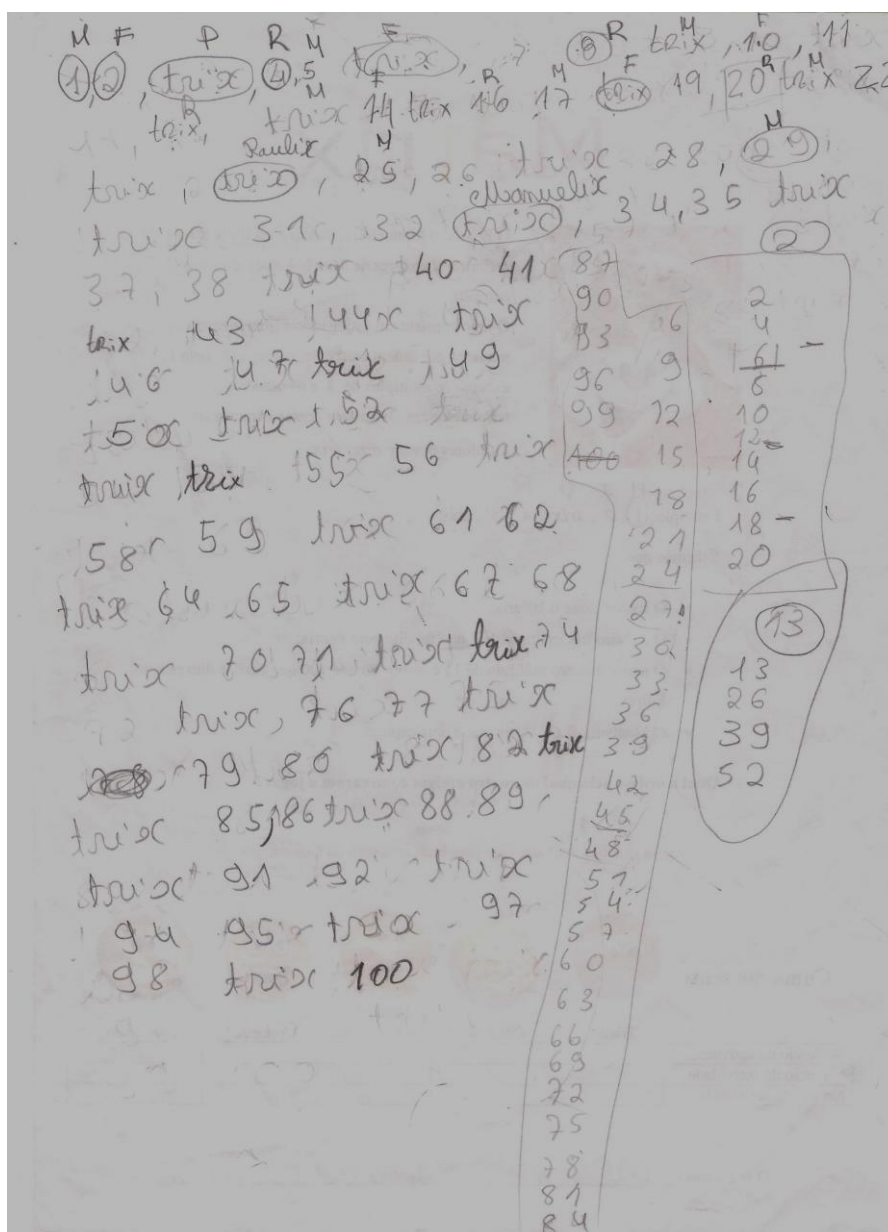 M F P R M F R M F
1, 2, trix, 4, 5 trix, 7 8 trix, 10, 11
R M F R M F R M
trix, trix 14 trix 16 17 trix 19, 20 trix 22
Paulix M M
trix, trix, 25, 26 trix 28, 29,
Manuelix
trix 31, 32 trix, 34, 35 trix
37, 38 trix 40 41
trix 43 44 trix
46 47 trix 49
50 trix 52
trix trix 55 56 trix
58 59 trix 61 62
trix 64 65 trix 67 68
trix 70 71 trix trix 74
trix, 76 77 trix
79 80 trix 82 trix
trix 85, 86 trix 88 89
trix 91 92 trix
94 95 trix 97
98 trix 100
87
90
93
96
99
100
6
9
12
15
18
21
24
27
30
33
36
39
42
45
48
51
54
57
60
63
66
69
72
75
78
81
84
2
2
4
6
10
12
14
16
18
20
13
13
26
39
52